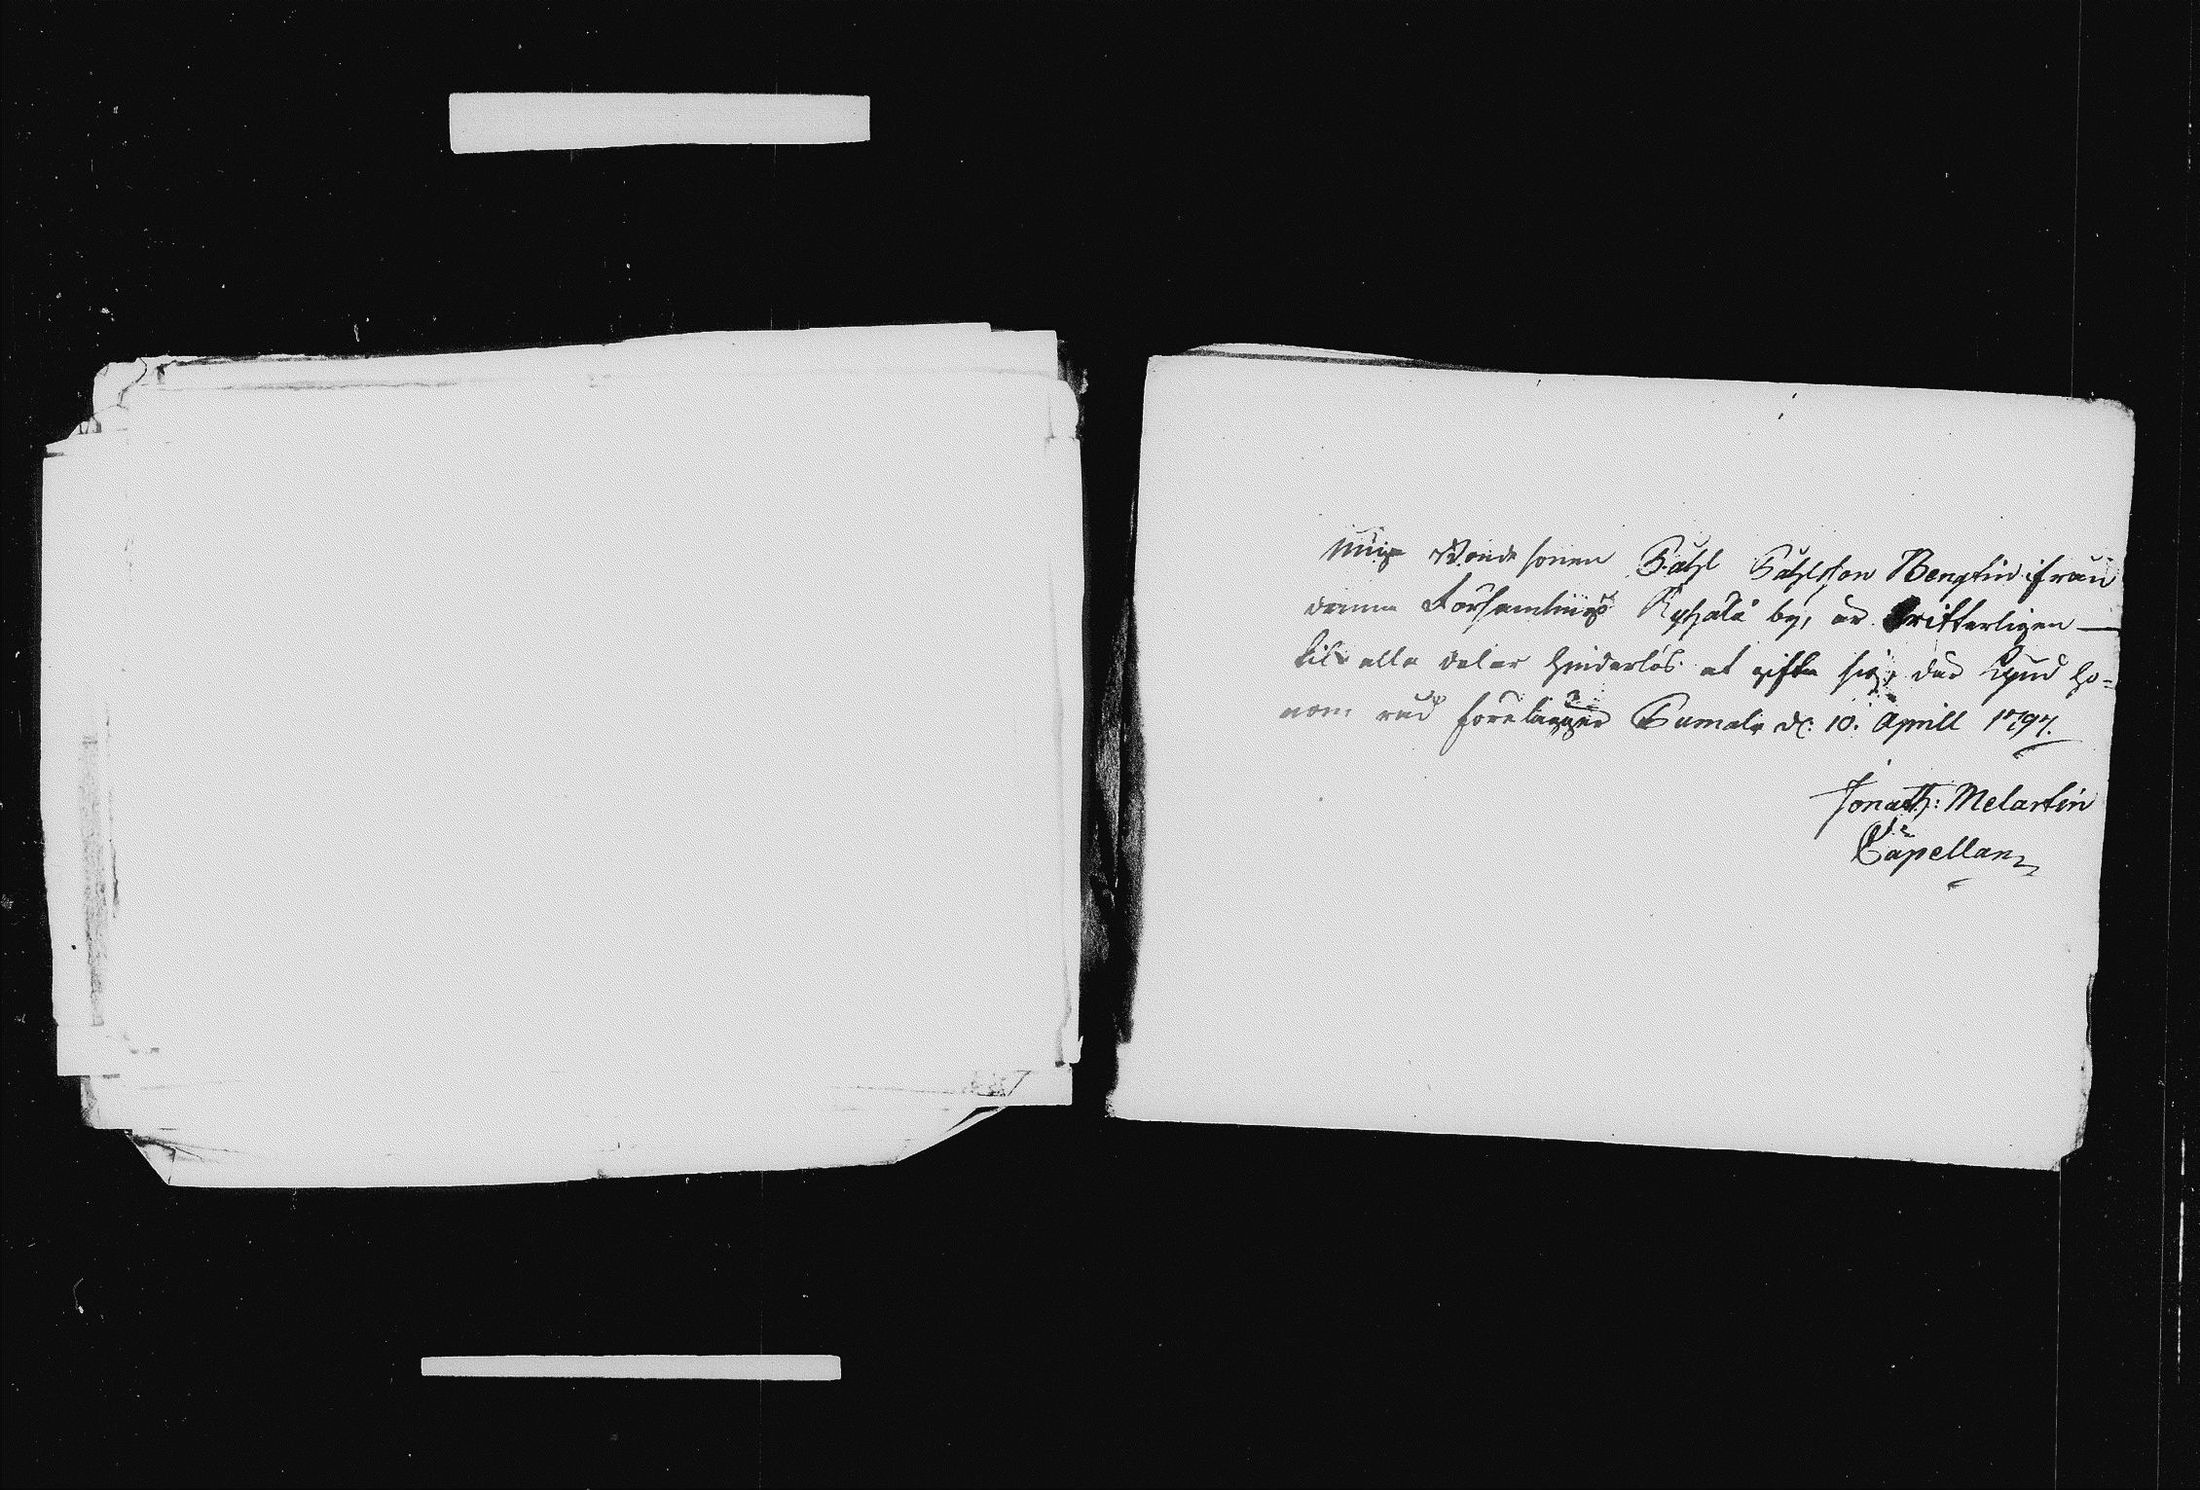 Bondesonen Påhl Påhlsson Bengtin ifrån
denna Församlings by, är Christerligen —
til alla delar hinderlös at gifta sig, där Gud ho-
nom råd förelägger Sumala d. 10. Aprill 1797.
Jonath: Melartin
Capellan